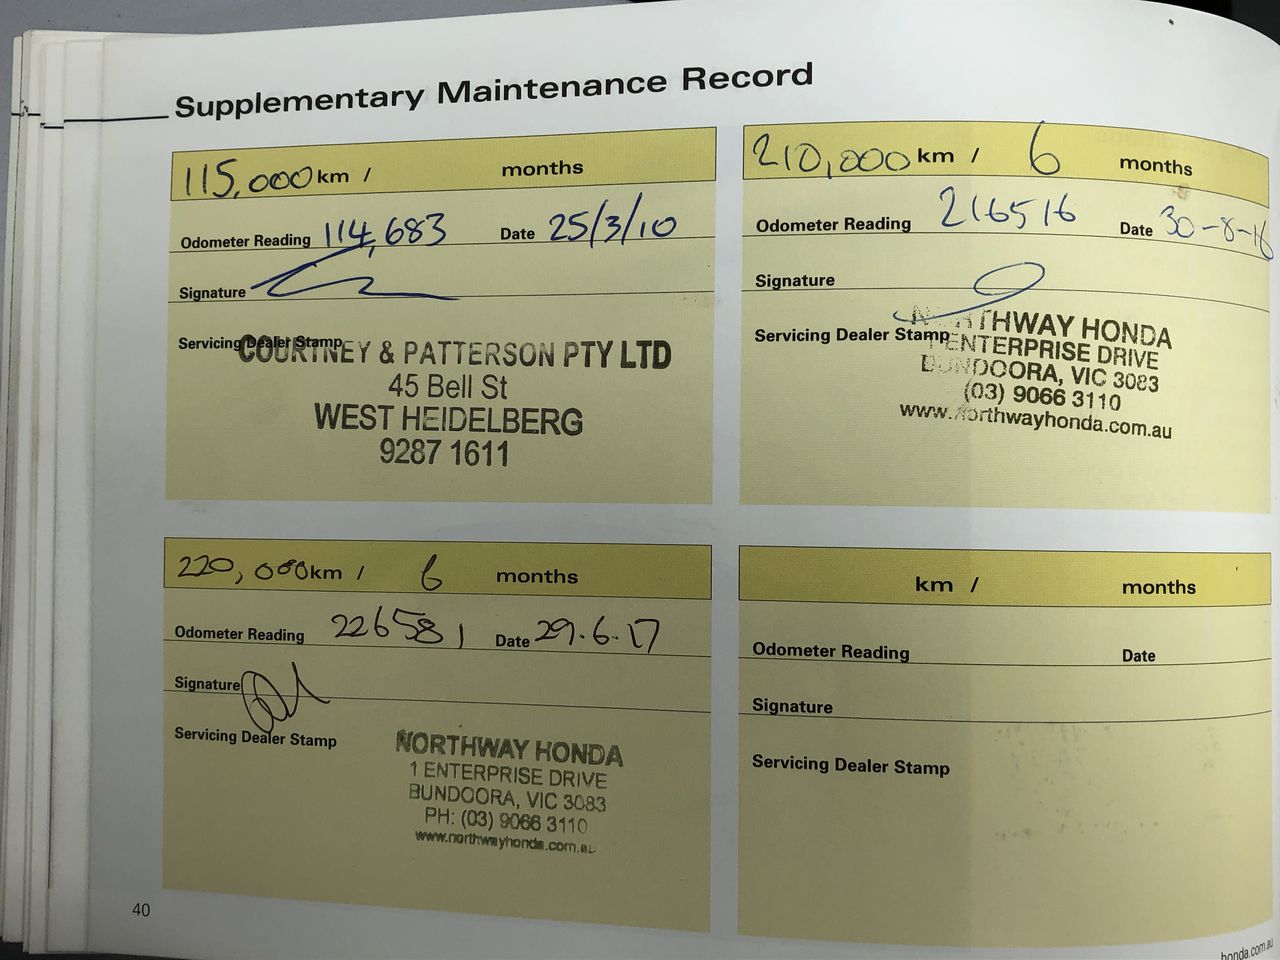 Supplementary Maintenance Record
115,000 km / months
Odometer Reading 114,683 Date 25/3/10
Signature
Servicing Dealer Stamp
COURTNEY & PATTERSON PTY LTD
45 Bell St
WEST HEIDELBERG
9287 1611
210,000 km / 6 months
Odometer Reading 216516 Date 30-8-16
Signature
Servicing Dealer Stamp
NORTHWAY HONDA
1 ENTERPRISE DRIVE
BUNDOORA, VIC 3083
(03) 9066 3110
www.northwayhonda.com.au
220,000 km / 6 months
Odometer Reading 226581 Date 29.6.17
Signature
Servicing Dealer Stamp
NORTHWAY HONDA
1 ENTERPRISE DRIVE
BUNDOORA, VIC 3083
PH: (03) 9066 3110
www.northwayhonda.com.au
km / months
Odometer Reading Date
Signature
Servicing Dealer Stamp
40
honda.com.au